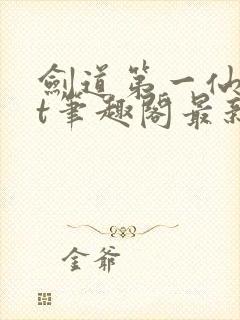 劍道第一仙
t筆趣閣最新
金爺